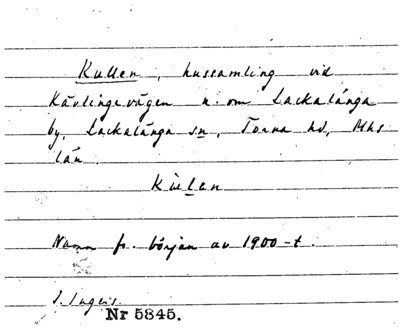 Kullen, hussamling vid
Kävlingevägen n. om Lackalånga
by, Lackalånga sn, Torna hd, Mhs
län.
Kùlen
Namn fr. början av 1900-t.
I. Ingers.
Nr 5845.